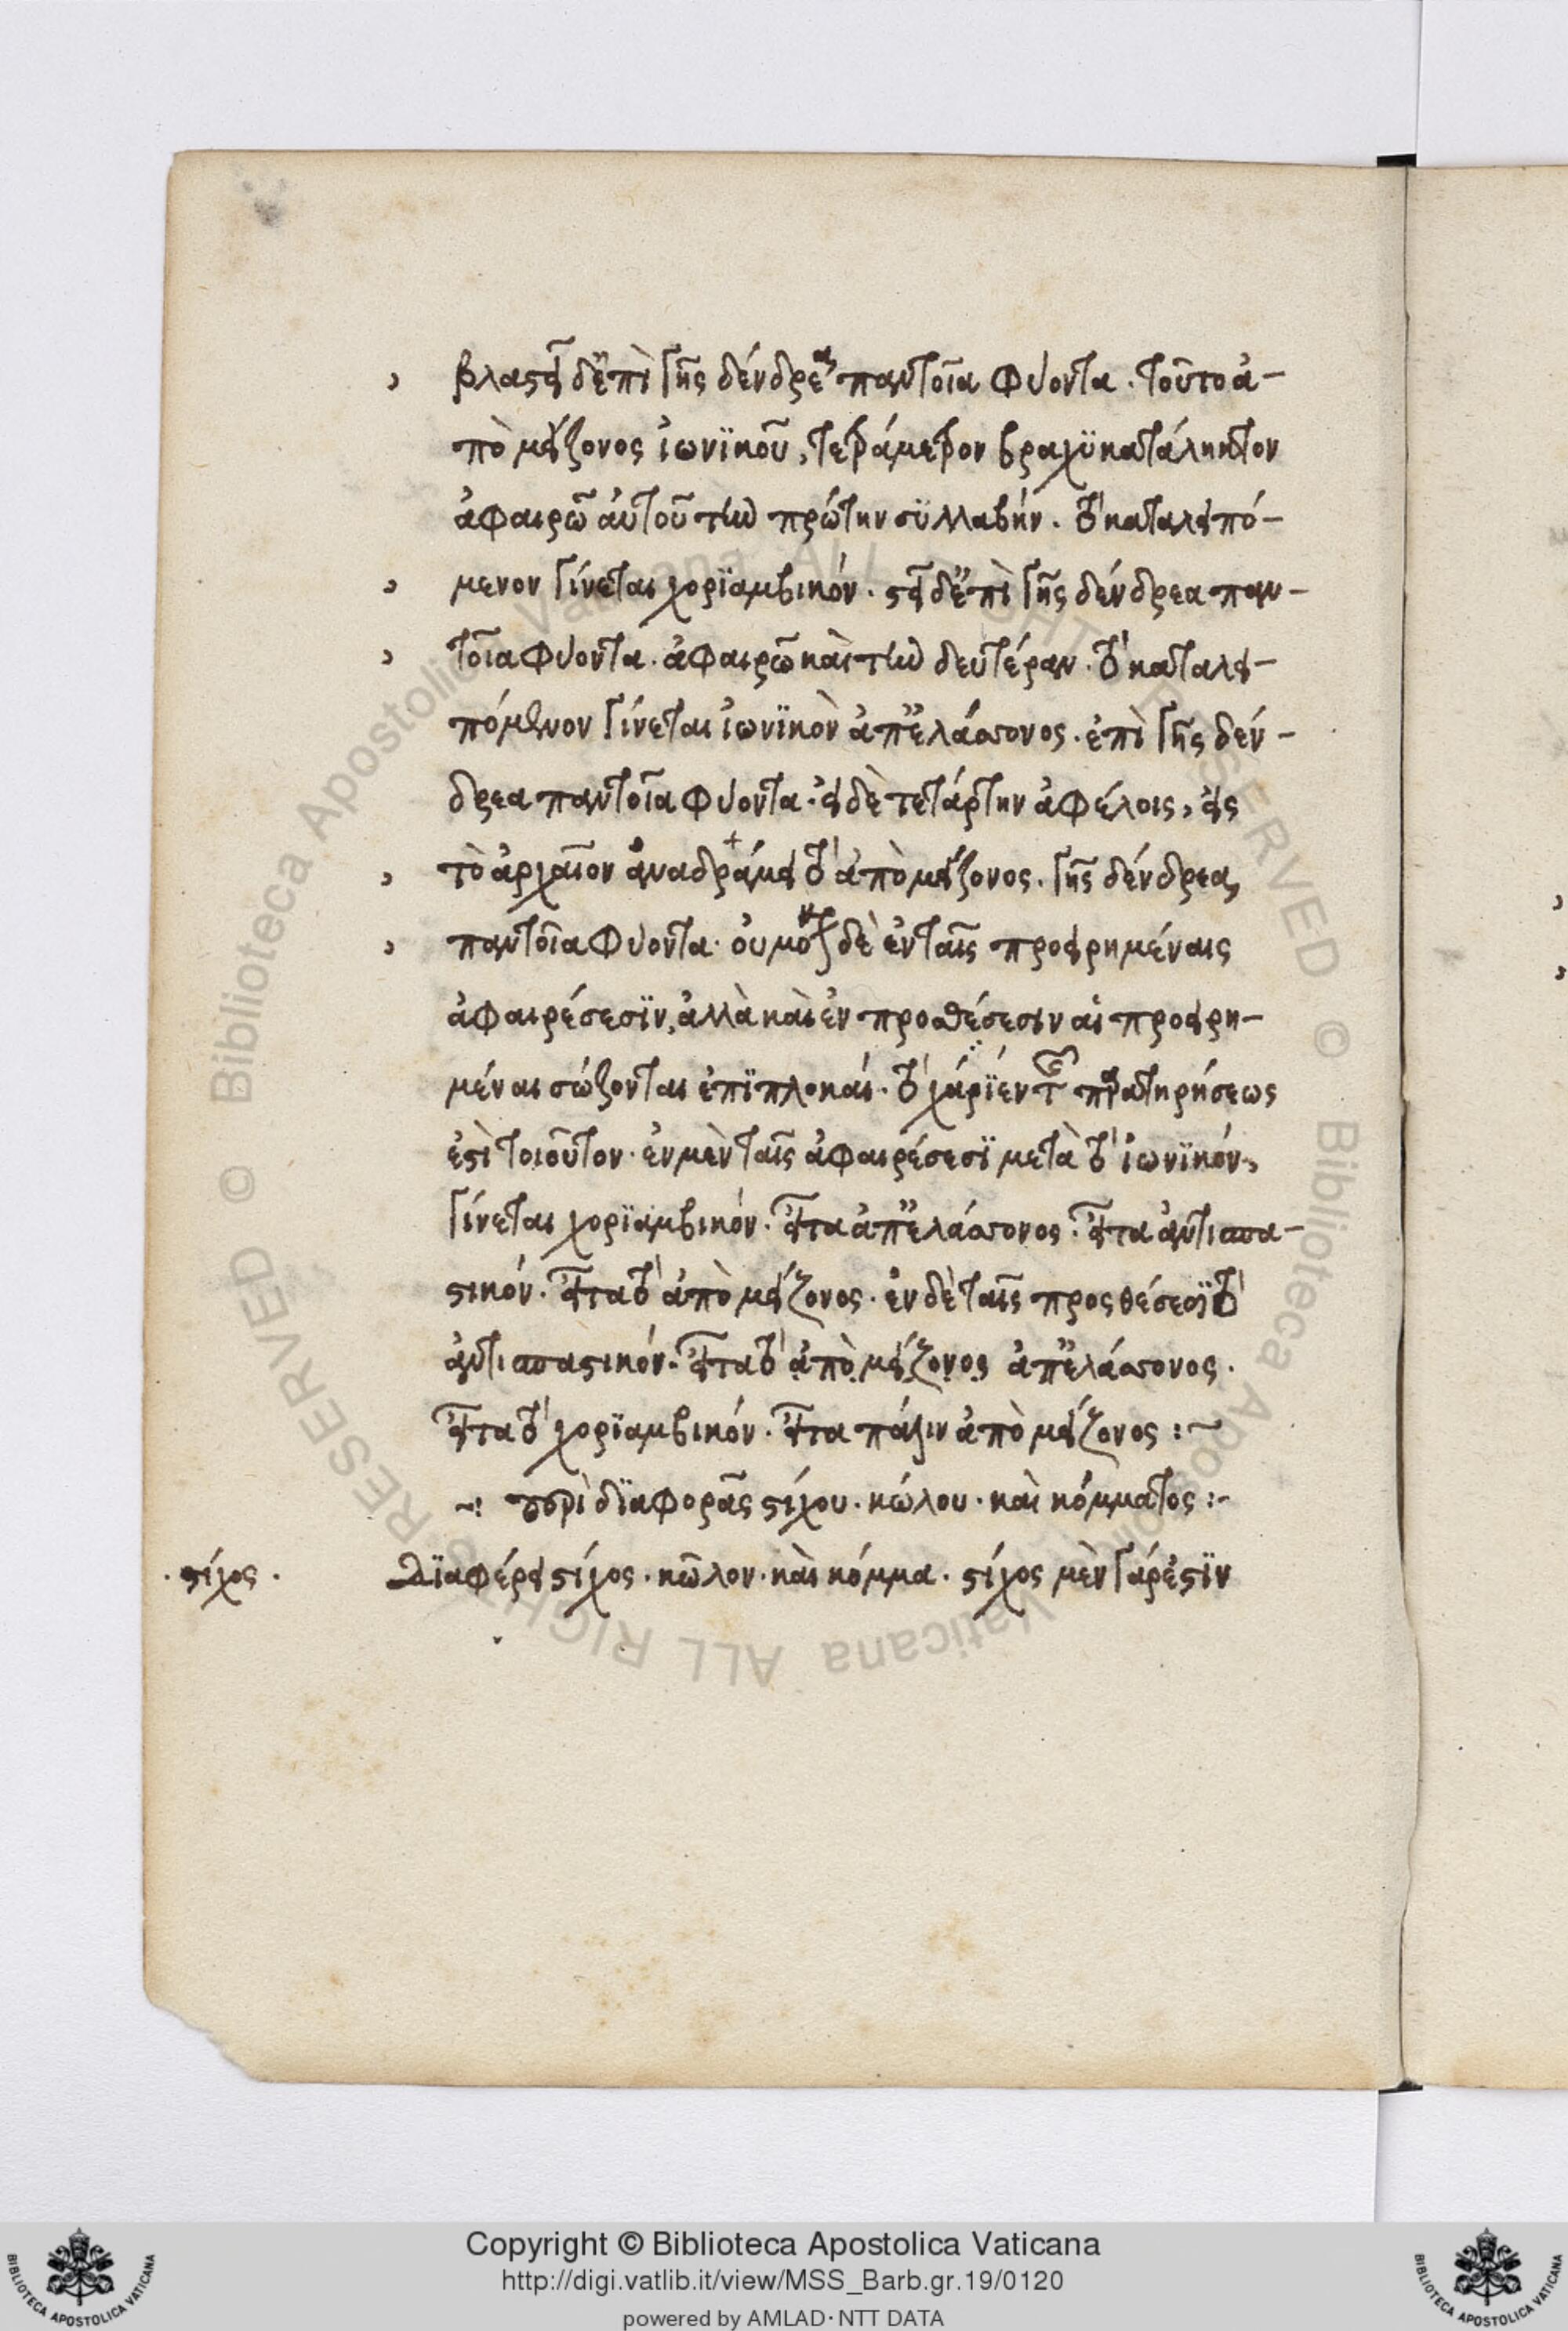 βλαστεῖ δ' ἐπὶ γῆς δένδρεα παντοῖα φύοντα. τοῦτο ἀ-
πὸ μείζονος ἰωνϊκοῦ, τετράμετρον βραχϋκατάληκτον
ἀφαιρῶ αὐτοῦ τὴν πρώτην σϋλλαβήν. τὸ καταλειπό-
μενον γίνεται χορϊαμβικόν. στεῖ δ' ἐπὶ γῆς δένδρεα παν-
τοῖα φύοντα. ἀφαιρῶ καὶ τὴν δευτέραν. τὸ καταλει-
πόμενον γίνεται ἰωνϊκὸν ἀπ' ἐλάσσονος. ἐπὶ γῆς δέν-
δρεα παντοῖα φύοντα. εἰ δὲ τετάρτην ἀφέλοις, εἰς
τὸ ἀρχαῖον ἀναδράμει τὸ ἀπὸ μείζονος. γῆς δένδρεα
παντοῖα φύοντα. οὐ μόνον δὲ ἐν ταῖς προειρημέναις
ἀφαιρέσεσϊν, ἀλλὰ καὶ ἐν προσθέσεσιν αἱ προειρη-
μέναι σώζονται ἐπϊπλοκαί. τὸ χάρϊεν τῆς παρατηρήσεως
ἐστὶ τοιοῦτον. ἐν μὲν ταῖς ἀφαιρέσεσϊ μετὰ τὸ ἰωνϊκόν,
γίνεται χορϊαμβικόν. εἶτα ἀπ' ἐλάσσονος. εἶτα ἀντισπα-
στικόν. εἶτα τὸ ἀπὸ μείζονος. ἐν δὲ ταῖς προςθέσεσϊ τὸ
ἀντισπαστικόν. εἶτα τὸ ἀπὸ μείζονος ἀπ' ἐλάσσονος.
εἶτα τὸ χορϊαμβικόν. εἶτα πάλιν ἀπὸ μείζονος :~
~: περὶ δϊαφορᾶς στίχου. κώλου. καὶ κόμματος :~
. στίχος . Δϊαφέρει στίχος. κῶλον. καὶ κόμμα. στίχος μὲν γάρ ἐστϊν
Copyright © Biblioteca Apostolica Vaticana
http://digi.vatlib.it/view/MSS_Barb.gr.19/0120
powered by AMLAD· NTT DATA